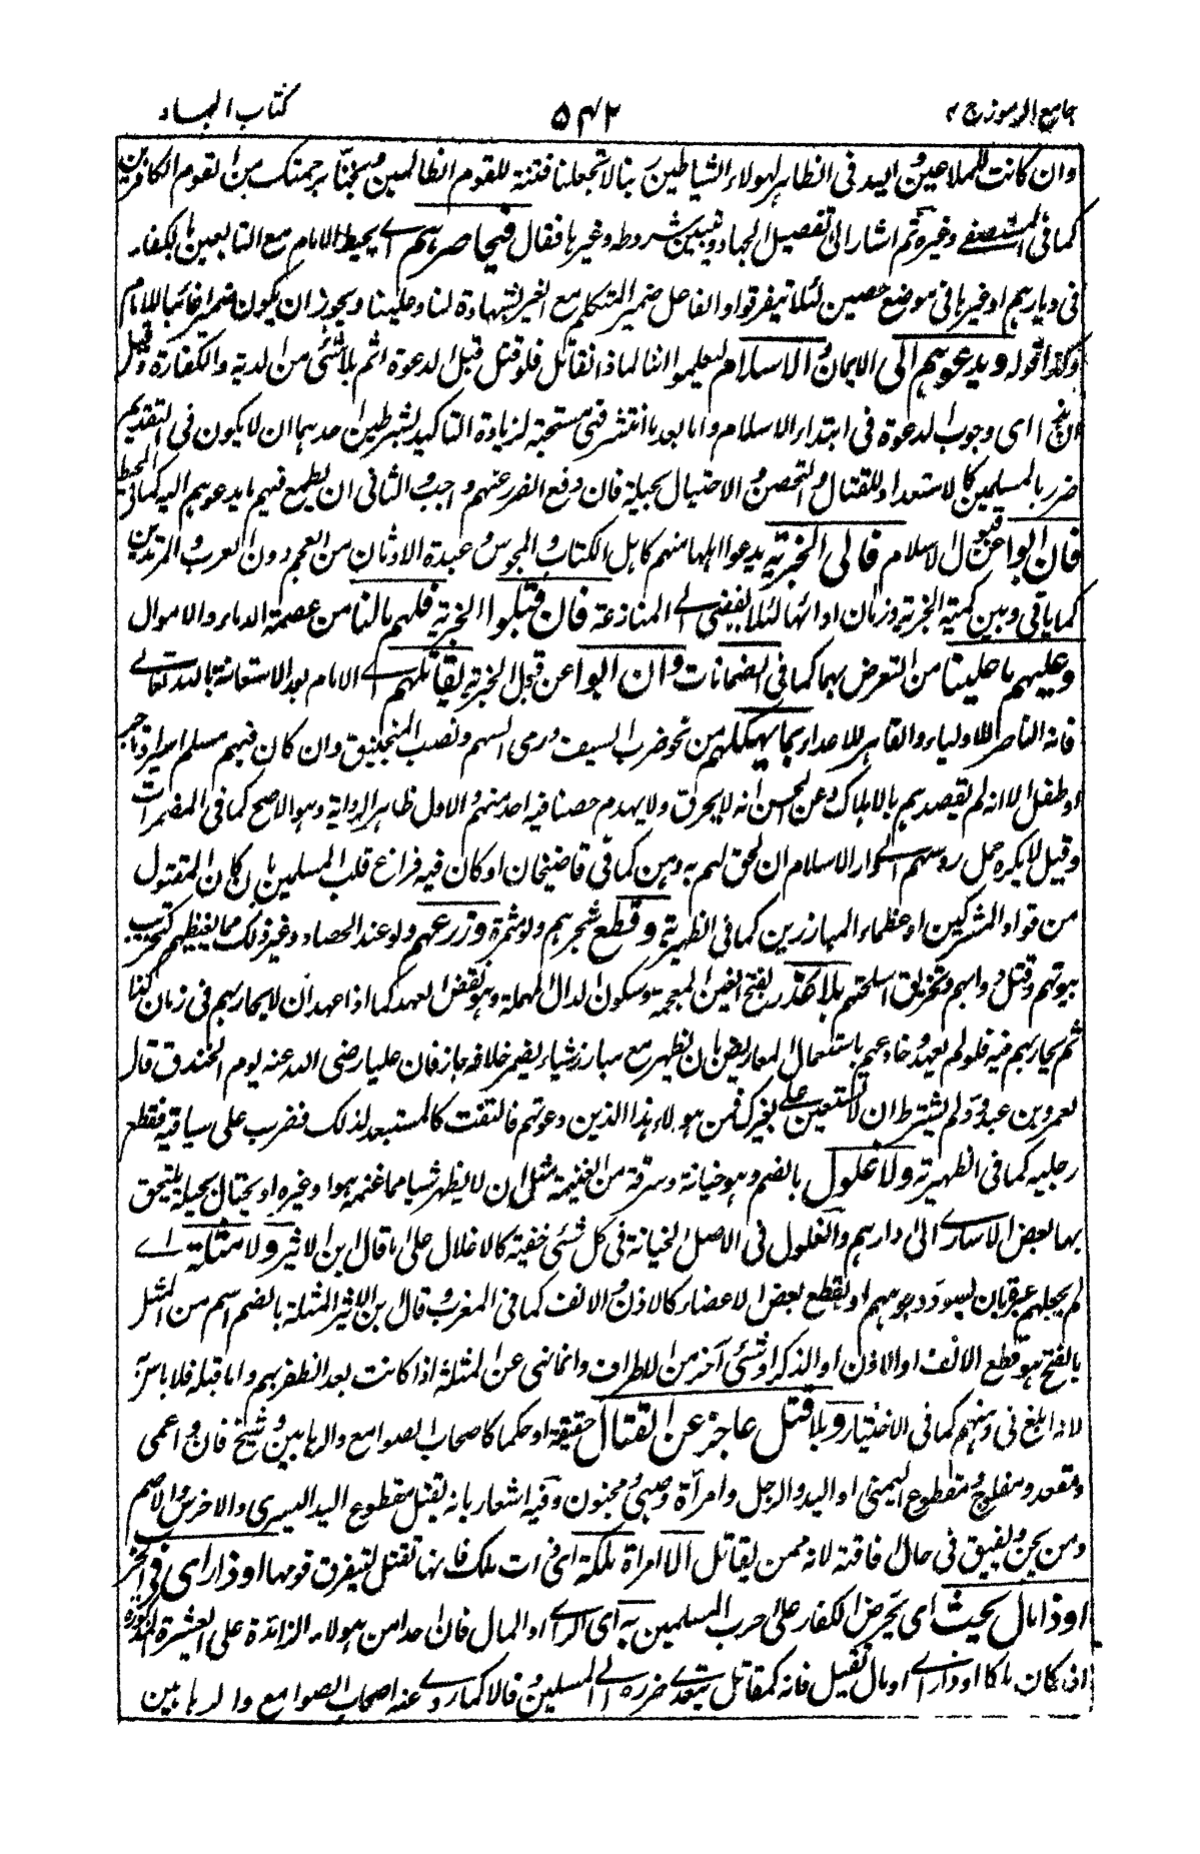 جامع الرموز ج ٢ ٥٤٢ كتاب الجهاد
وان كانت للملاعين اليد فى الظاهر لهولاء الشياطين ربنا لا تجعلنا فتنة للقوم الظالمين ونجنا برحمتك من القوم الكافرين
كما فى المستصفى وغيره ثم اشار الى تفصيل الجهاد وتبيين شروطه وغيرها فقال فيحاصرهم اى يحيط الامام مع التابعين بالكفار
فى ديارهم او غيرها فى موضع حصين لئلا يتفرقوا والفاعل ضمير المتكلم مع الغير لشهادة لنا وعلينا ويجوز ان يكون ضميرا غائبا للامام
وكذا قوله ويدعوهم الى الايمان والاسلام ليعلموا اننا لماذا نقاتل فلو قتل قبل الدعوة اثم بلا شئ من الدية والكفارة وقيل
اى وجوب الدعوة فى ابتداء الاسلام واما بعد ما انتشر فهى مستحبة لزيادة التاكيد بشرطين احدهما ان لا يكون فى التقديم
ضرر بالمسلمين كالاستعداد للقتال والتحصن والاحتيال بحيلة فان دفع الضرر عنهم واجب والثانى ان يطمع فيهم ما يدعوهم اليه كما فى المحيط
فان ابوا عن قبول الاسلام فالى الجزية يدعوا اهلها منهم كاهل الكتاب والمجوس وعبدة الاوثان من العجم دون العرب والمرتدين
كما ياتى وبين كمية الجزية وزمان ادائها لئلا يفضى الى المنازعة فان قبلوا الجزية فلهم مالنا من عصمة الدماء والاموال
وعليهم ما علينا من التعرض بهما كما فى الضمانات وان ابوا عن قبول الجزية يقاتلهم اى الامام بعد الاستعانة بالله تعالى
فانه الناصر للاولياء والقاهر للاعداء بما يهلكهم من نحو ضرب السيف ورمى السهم ونصب المنجنيق وان كان فيهم مسلم اسير او تاجر
او طفل الا انه لم يقصدهم بالاهلاك وعن الحسن انه لا يحرق ولا يهدم حصنا فيه احد منهم والاول ظاهر الرواية وهو الاصح كما فى المضمرات
وقيل لا يكره حمل رؤسهم الى دار الاسلام ان لحق لهم به وهن كما فى قاضيخان او كان فيه فراغ قلب المسلمين بان كان المقتول
من قواد المشركين او عظماء المبارزين كما فى الظهيرية وقطع شجرهم ولو مثمرة وزرعهم ولو عند الحصاد وغير ذلك مما يغيظهم كتخريب
بيوتهم وقتل دوابهم وتحريق اسلحتهم بلا غدر بفتح الغين المعجمة وسكون الدال المهملة وهو نقض العهد كما اذا عهد ان لا يحاربهم فى زمان كذا
ثم يحاربهم فيه فلو لم يعهد وخادعهم باستعمال المعاريض بان يظهر مع مبارز شياء يضمر خلافه جاز فان عليا رضى الله عنه يوم الخندق قال
لعمرو بن عبد ود لم يشترط ان لا تستعين على بغيرك فمن هولاء هذا الذين دعوتهم فالتفت كالمستبعد لذلك فضرب على ساقيه فقطع
رجليه كما فى الظهيرية ولا غلول بالضم وهو خيانة وسرقة من الغنيمة مثل ان لا يظهر شيا مما غنمه هو او غيره او يحتال بحيلة يلتحق
بها بعض الاسارى الى دارهم والغلول فى الاصل الخيانة فى كل شئ خفية كالاغلال على ما قال ابن الاثير ولا مثلة اى
لم يجعلهم عبرة بان يسود وجوههم او يقطع بعض الاعضاء كالاذن والانف كما فى المغرب وقال ابن الاثير المثلة بالضم اسم من المثل
بالفتح هو قطع الانف او الاذن او الذكر او شئ آخر من الاطراف وانما نهى عن المثلة اذا كانت بعد الظفر بهم واما قبله فلا باس
لانه ابلغ فى وهنهم كما فى الاختيار وبلا قتل عاجز عن القتال حقيقة او حكما كاصحاب الصوامع والرهابين وشيخ فان واعمى
ومقعد ومفلوج ومقطوع اليمنى او اليد والرجل وامرأة وصبى ومجنون وفيه اشعار بانه يقتل مقطوع اليد اليسرى والاخرس والاصم
ومن يجن ويفيق فى حال افاقته لانه ممن يقاتل الا امراة ملكة اى ذات ملك فانها تقتل ليتفرق قومها او ذا راى فى الحرب
او ذا مال يحيث اى يحرض الكفار على حرب المسلمين به اى الراى او المال فان احدا من هولاء الزائدة على العشرة المذكورة
ان كان ملكا او ذا راى او مال يقتل فانه كمقاتل يتعدى ضرره الى المسلمين فالاكما روى عنه اصحاب الصوامع والرهابين